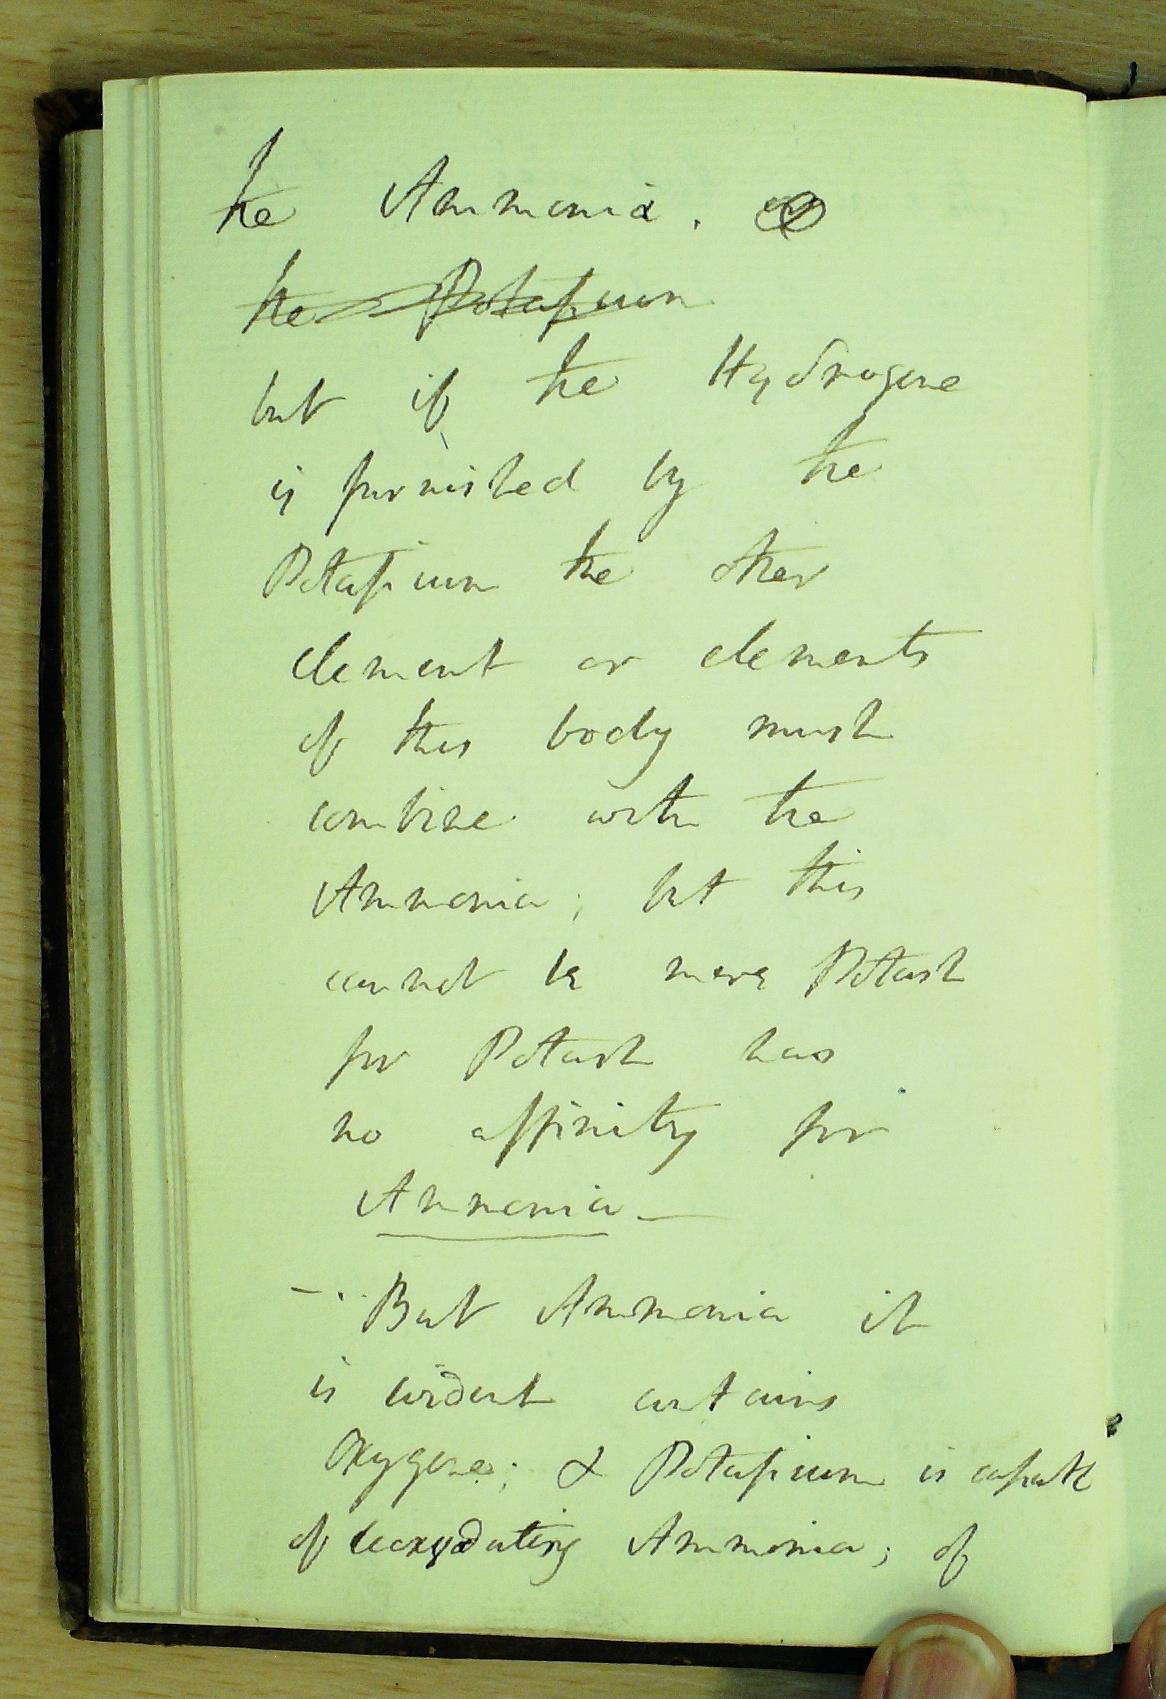 the Ammonia.
the Potassium
but if the Hydrogene
is furnished by the
Potassium the other
element or elements
of this body must
combine with the
Ammonia; but this
cannot be mere Potash
for Potash has
no affinity for
Ammonia —
— But Ammonia it
is evident contains
Oxygene; & Potassium is capable
of deoxydating Ammonia; of